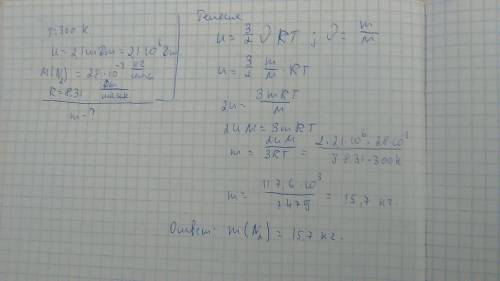 T=300 K
U = 21 мДж = 21·10⁶ Дж
M(N₂) = 28·10⁻³ кг/моль
R = 8.31 Дж/моль·к
m-?
Решение
U = 3/2 ν RT ; ν = m/M
U = 3/2 m/M RT
2U = 3mRT/M
2UM = 3mRT
m = 2UM/3RT = 2·21·10⁶·28·10³/3·8.31·300k
m = 117,6·10³/7479 = 15,7 кг
Ответ: m(N₂) = 15,7 кг.